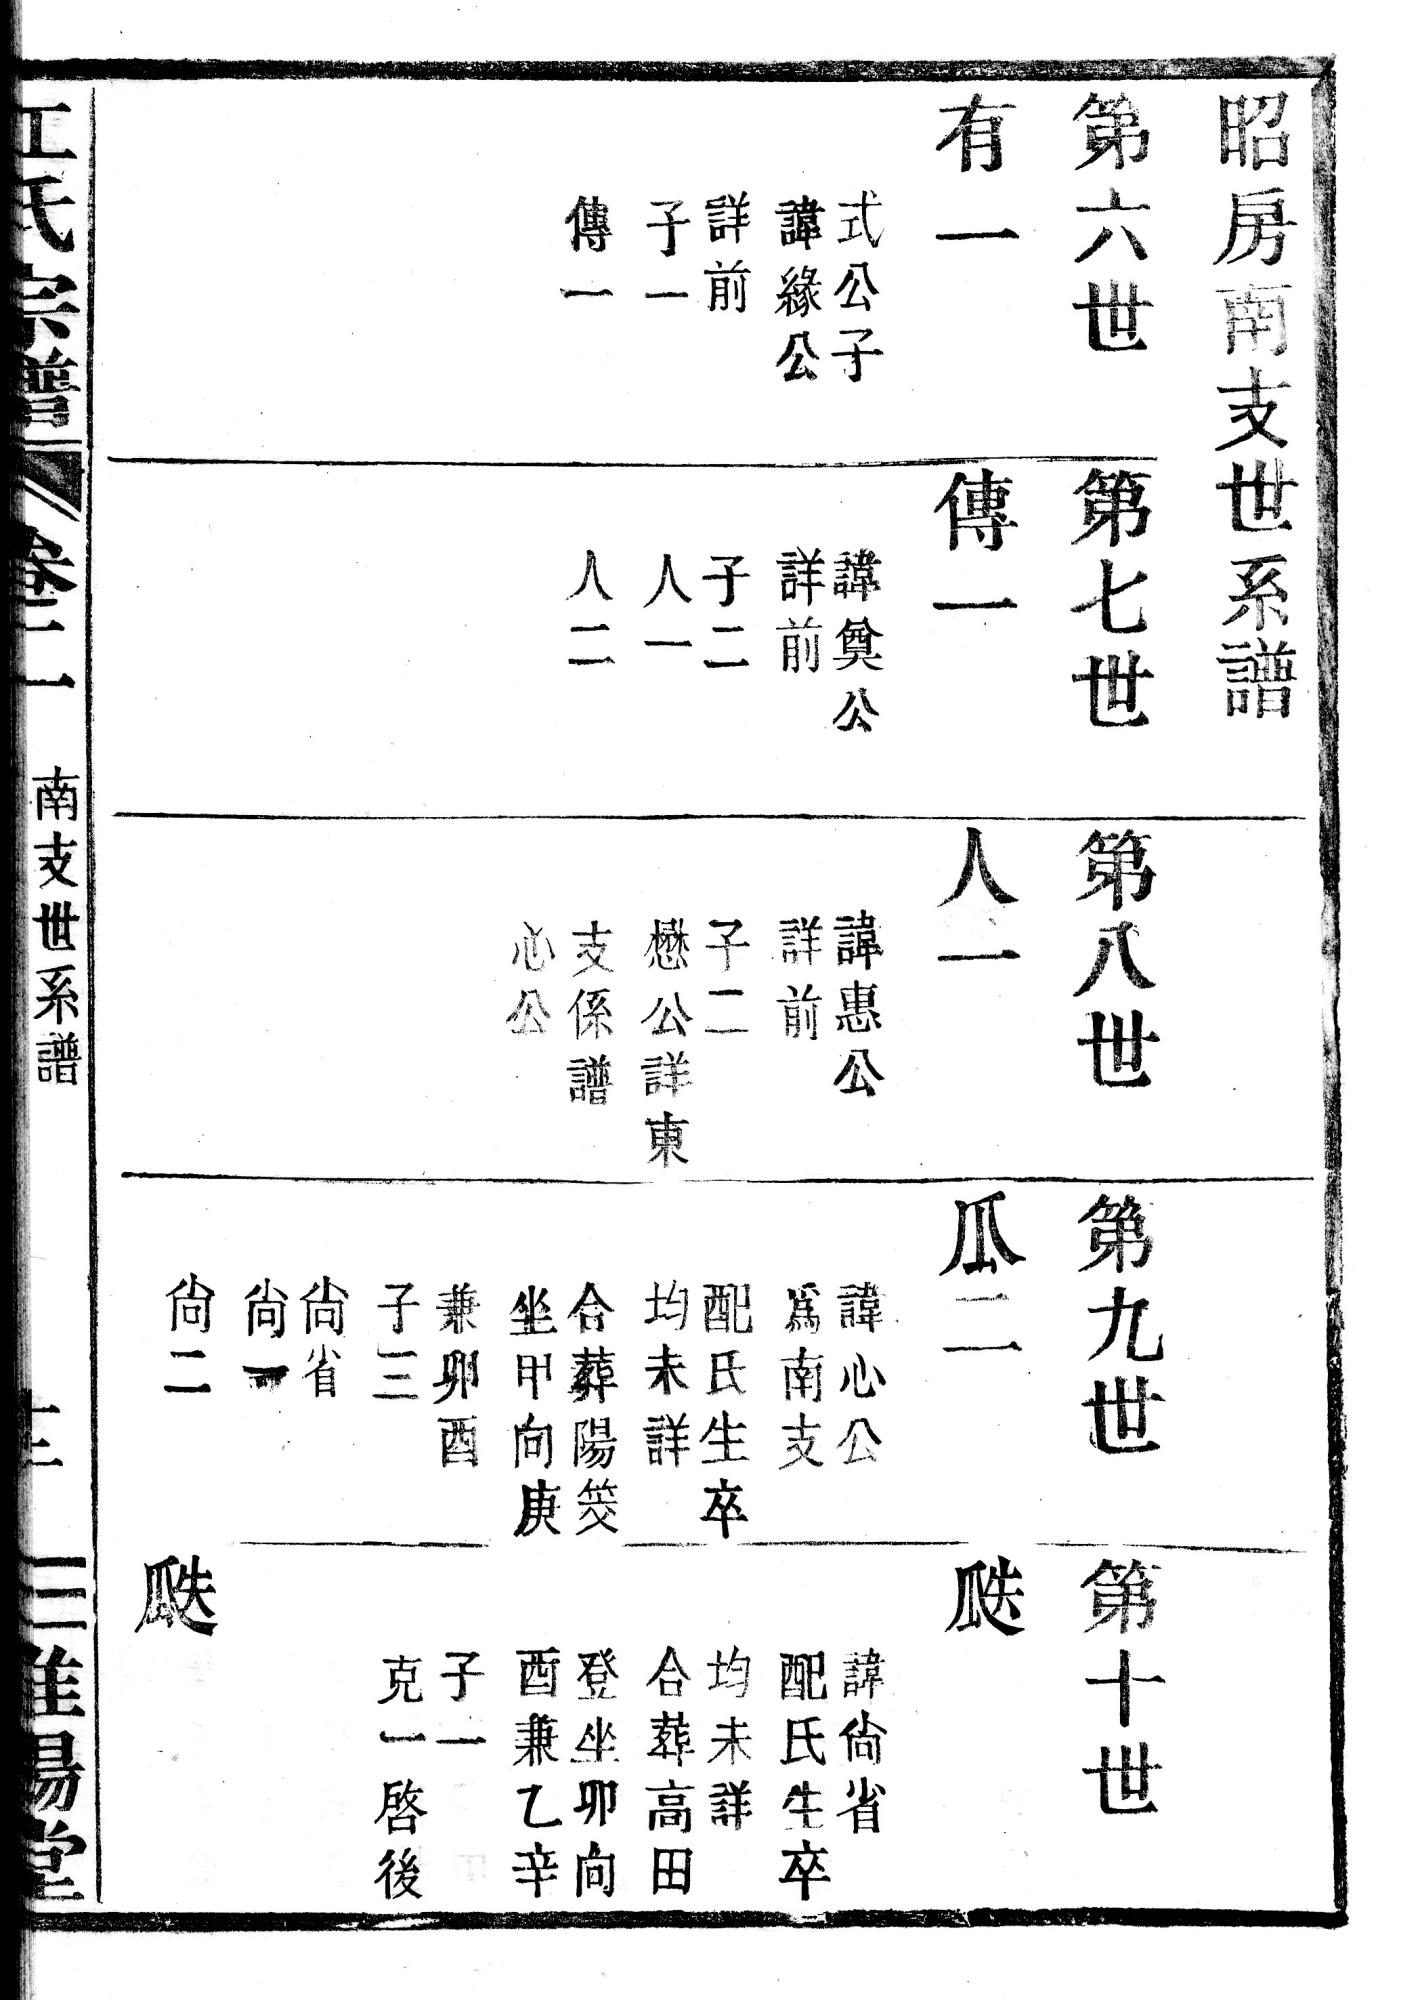 昭房南支世系譜
第六世
有一
式公子
諱緣公
詳前
子一
傳一
第七世
傳一
諱奠公
詳前
子二
人一
人二
第八世
人一
諱惠公
詳前
子二
懋公詳東
支係譜
心公
第九世
瓜二
諱心公
爲南支
配氏生卒
均未詳
合葬陽筊
坐甲向庚
兼卯酉
子三
尙省
尙一
尙二
第十世
瓞
諱尙省
配氏生卒
均未詳
合葬高田
登坐卯向
酉兼乙辛
子一
克一啓後
瓞
江氏宗譜
卷二
南支世系譜
三
淮陽堂